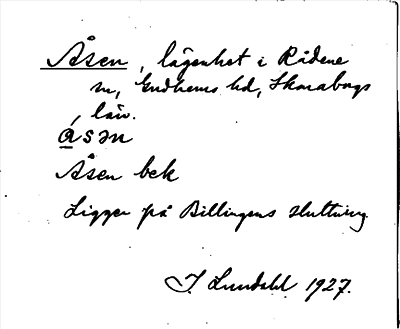 Åsen, lägenhet i Rådene
sn, Gudhems hd, Skaraborgs
län.
åsən
Åsen bek
Ligger på Billingens sluttning
I. Lundahl 1927.